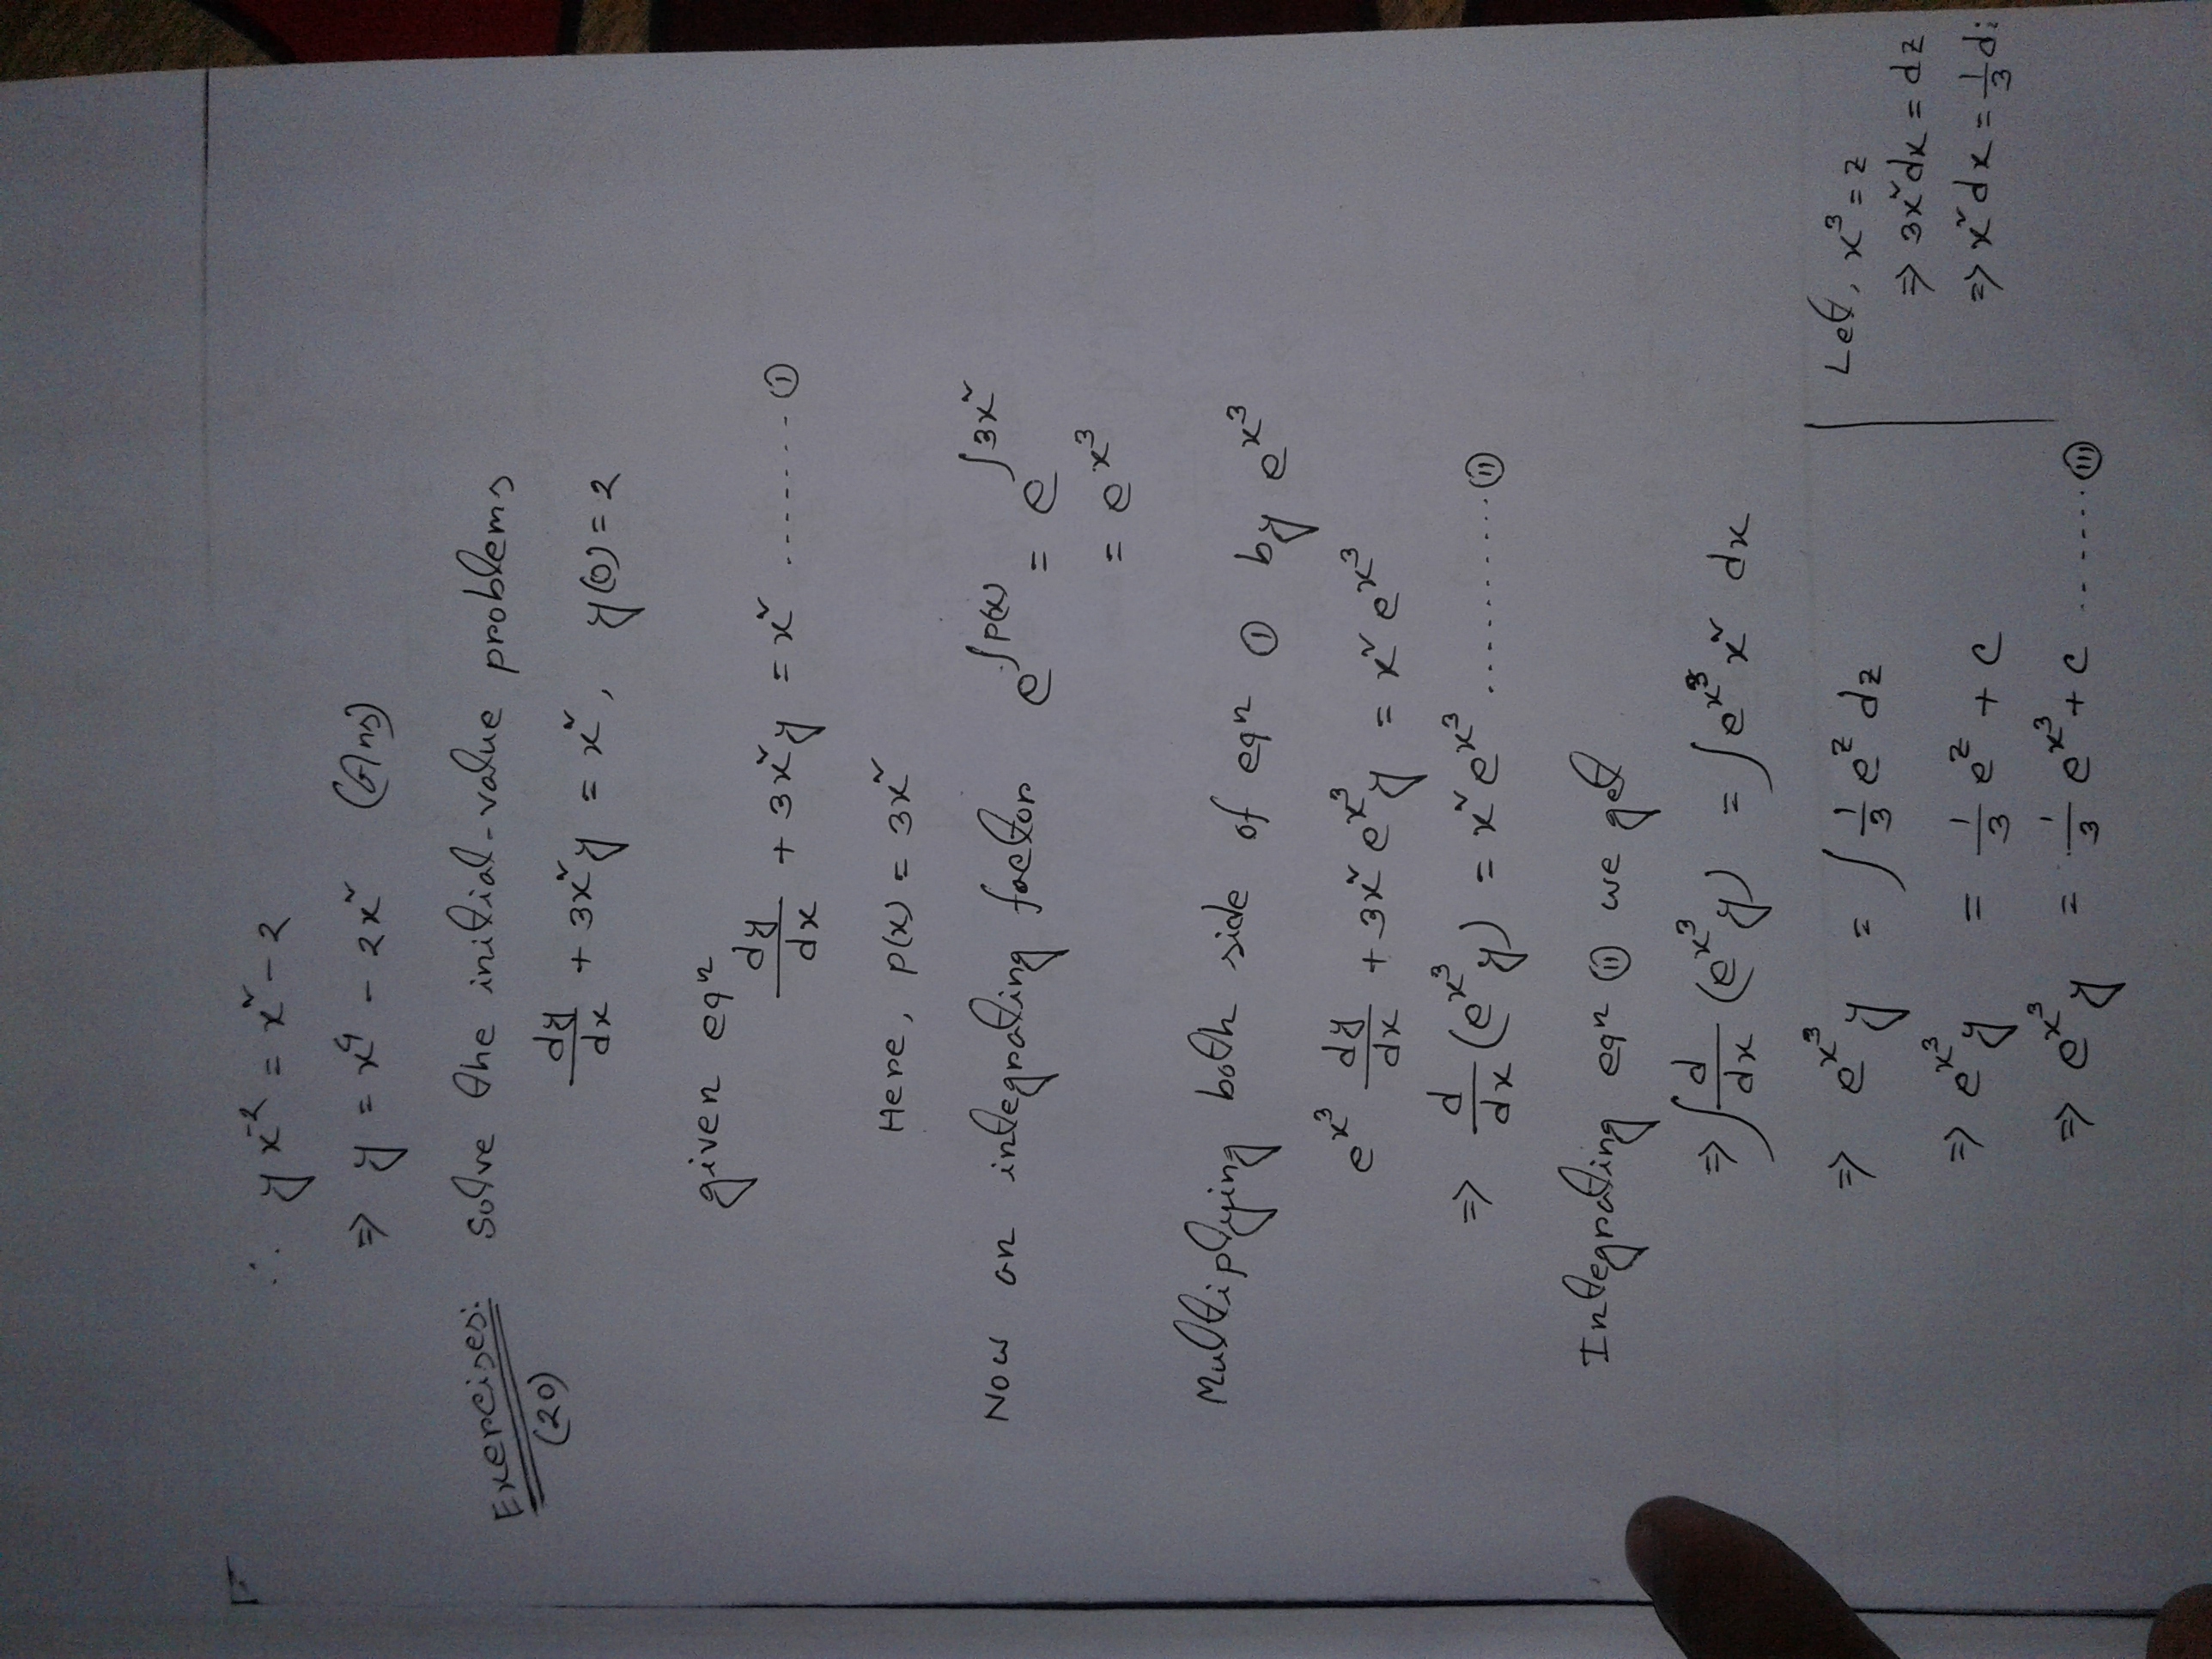 ∴ y x⁻² = x² - 2
⇒ y = x⁴ - 2x² (Ans)
Exercises: Solve the initial-value problems
(20)
dy/dx + 3x²y = x², y(0) = 2
given eqⁿ
dy/dx + 3x²y = x² ........ ①
Here, P(x) = 3x²
Now an integrating factor e^∫P(x) = e^∫3x²
= e^x³
Multiplying both side of eqⁿ ① by e^x³
e^x³ dy/dx + 3x² e^x³ y = x² e^x³
⇒ d/dx (e^x³ y) = x² e^x³ ........... ⑪
Integrating eqⁿ ⑪ we get
⇒ ∫ d/dx (e^x³ y) = ∫ e^x³ x² dx
⇒ e^x³ y = ∫ 1/3 e^z dz
⇒ e^x³ y = 1/3 e^z + c
⇒ e^x³ y = 1/3 e^x³ + c ....... (111)
Let, x³ = z
⇒ 3x² dx = dz
⇒ x² dx = 1/3 d